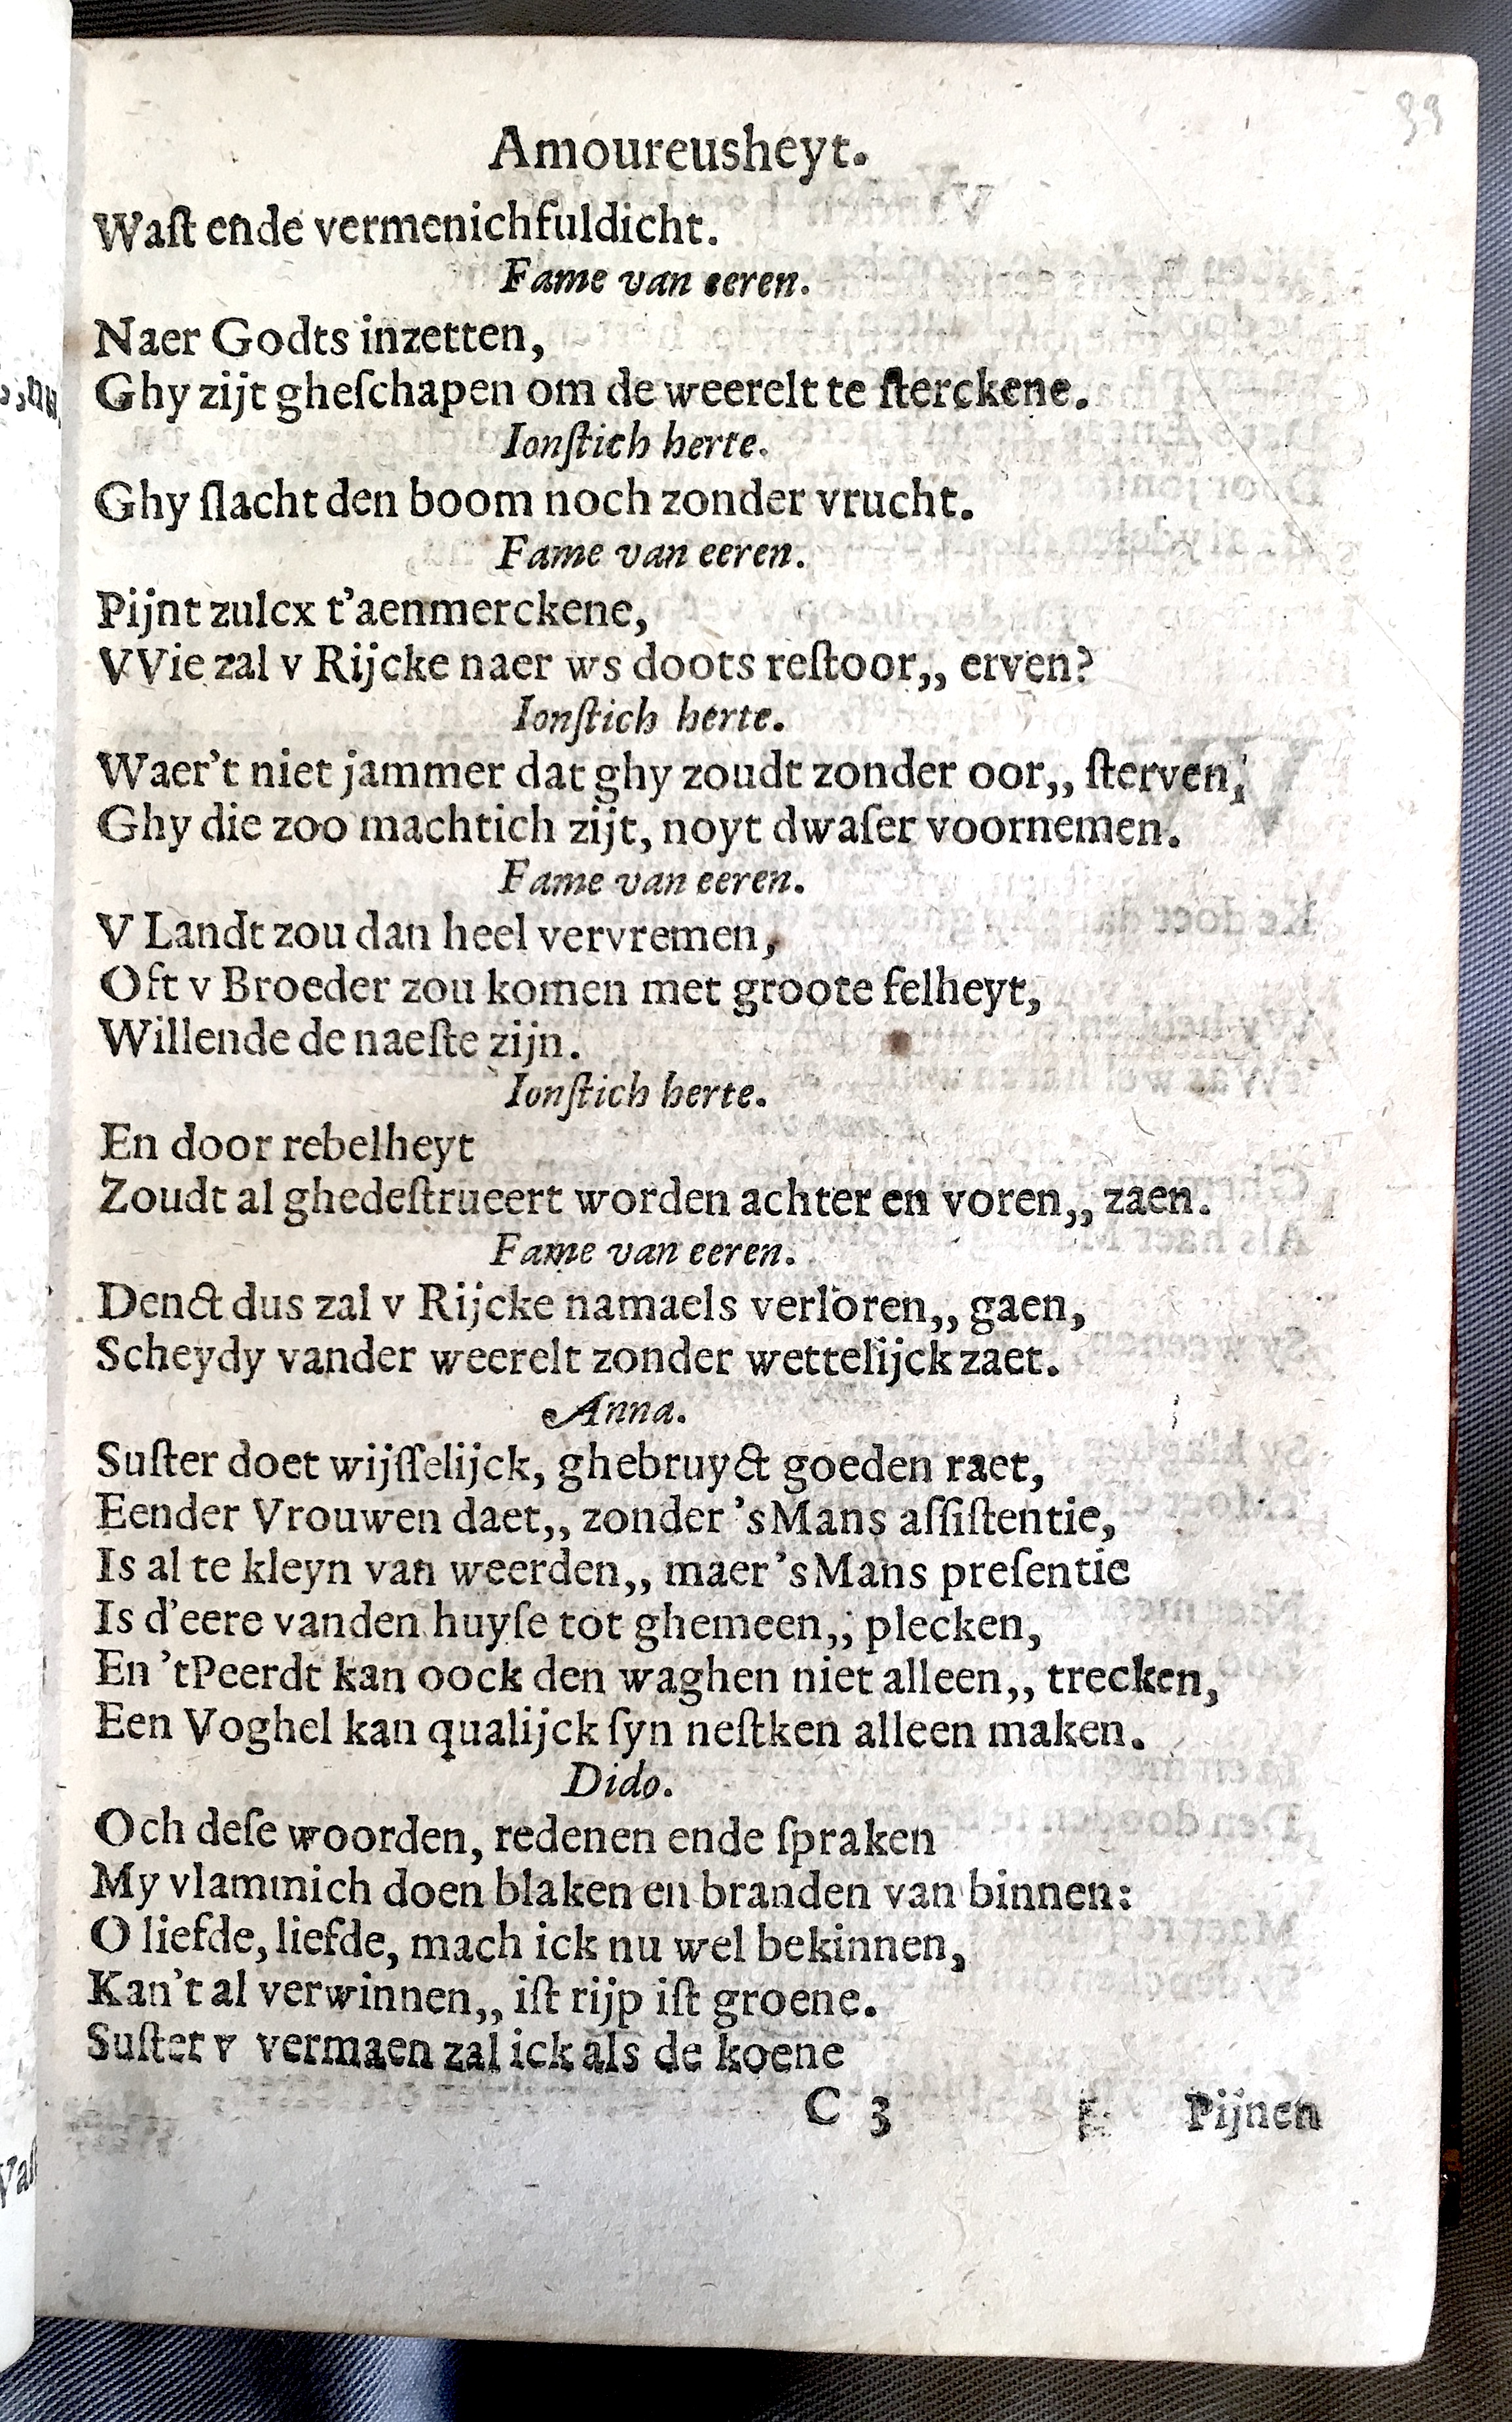 99
Amoureusheyt.
Waſt ende vermenichfuldicht.
Fame van eeren.
Naer Godts inzetten,
Ghy zijt gheſchapen om de weerelt te ſterckene.
Ionſtich herte.
Ghy ſlacht den boom noch zonder vrucht.
Fame van eeren.
Pijnt zulcx t'aenmerckene,
VVie zal v Rijcke naer ws doots reſtoor,, erven?
Ionſtich herte.
Waer't niet jammer dat ghy zoudt zonder oor,, ſterven,
Ghy die zoo machtich zijt, noyt dwaſer voornemen.
Fame van eeren.
V Landt zou dan heel vervremen,
Oft v Broeder zou komen met groote felheyt,
Willende de naeſte zijn.
Ionſtich herte.
En door rebelheyt
Zoudt al ghedeſtrueert worden achter en voren,, zaen.
Fame van eeren.
Denct dus zal v Rijcke namaels verloren,, gaen,
Scheydy vander weerelt zonder wettelijck zaet.
Anna.
Suſter doet wijſſelijck, ghebruyct goeden raet,
Eender Vrouwen daet,, zonder 'sMans aſſiſtentie,
Is al te kleyn van weerden,, maer 'sMans preſentie
Is d'eere vanden huyſe tot ghemeen,, plecken,
En 'tPeerdt kan oock den waghen niet alleen,, trecken,
Een Voghel kan qualijck ſyn neſtken alleen maken.
Dido.
Och deſe woorden, redenen ende ſpraken
My vlammich doen blaken en branden van binnen:
O liefde, liefde, mach ick nu wel bekinnen,
Kan't al verwinnen,, iſt rijp iſt groene.
Suſter v vermaen zal ick als de koene
C 3 Pijnen